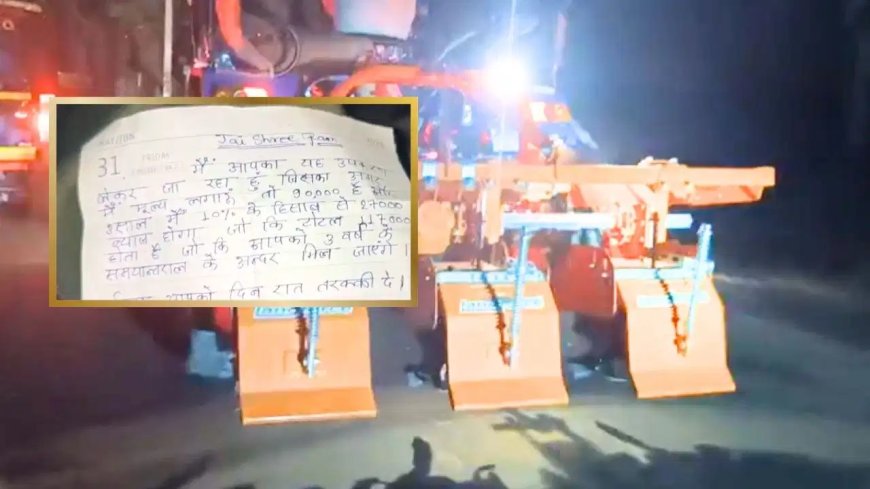 Jai Shree Ram
31 FRIDAY
मैं आपका यह
लेकर जा रहा हूँ जिसका अगर
मैं मूल्य लगाऊँ तो 90,000 है और
3 साल में 10% के हिसाब से 27000
ब्याज होगा जो कि टोटल 117000
होता है जो कि आपको 3 वर्ष के
के अन्दर मिल जाएंगे।
आपको दिन रात तरक्की दे।